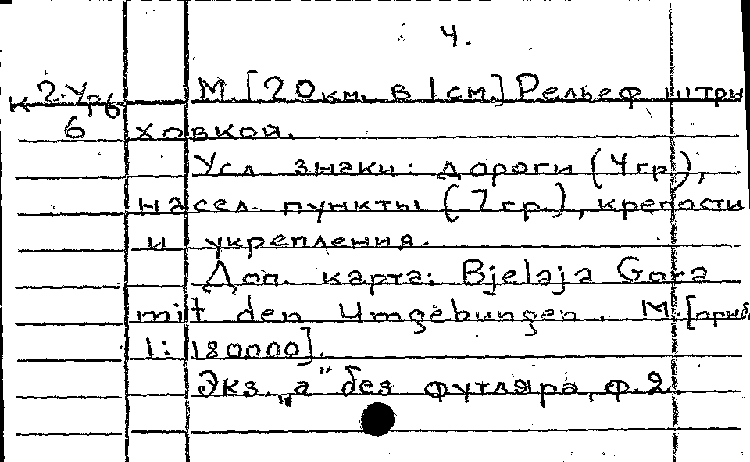 4.
К 2-Ур6 М.[20км. в 1см.] Рельеф штри
6 ховкой.
Усл. знаки: дороги (4гр.),
насел. пункты (7гр.), крепости
и укрепления.
Доп. карта: Bjelaja Gora
mit den Umgebungen. М.[приб.
1:180000].
Экз. „а" без футляра, ф. 2.